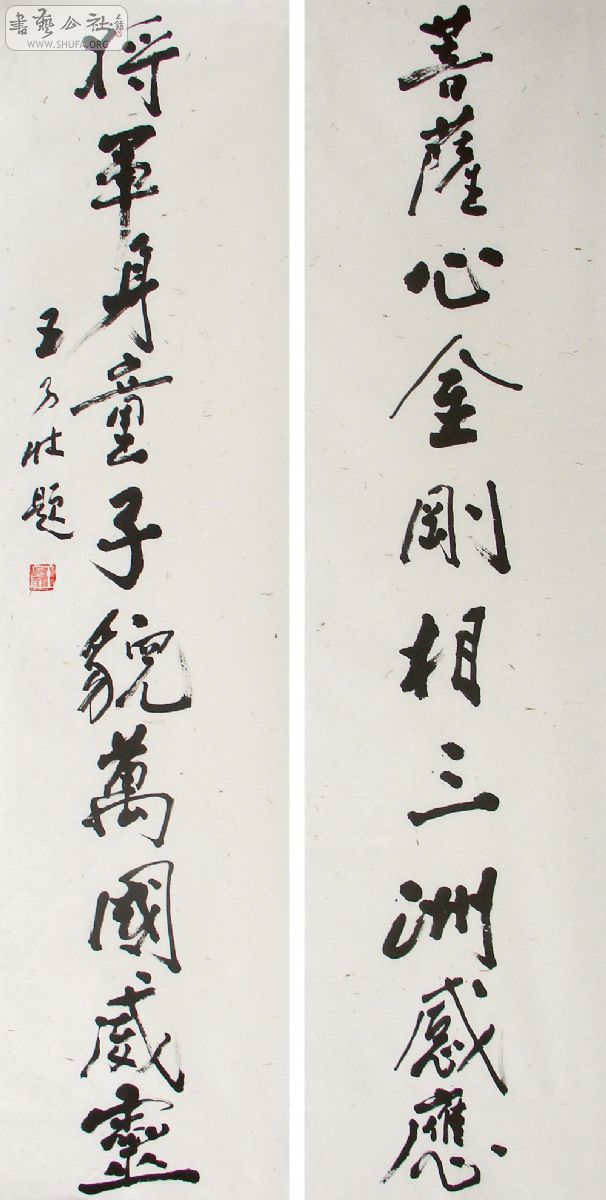 菩薩心金剛相三洲感應
將軍身童子貌萬國威靈
王乃壯題
書藝公社
WWW.SHUFA.ORG